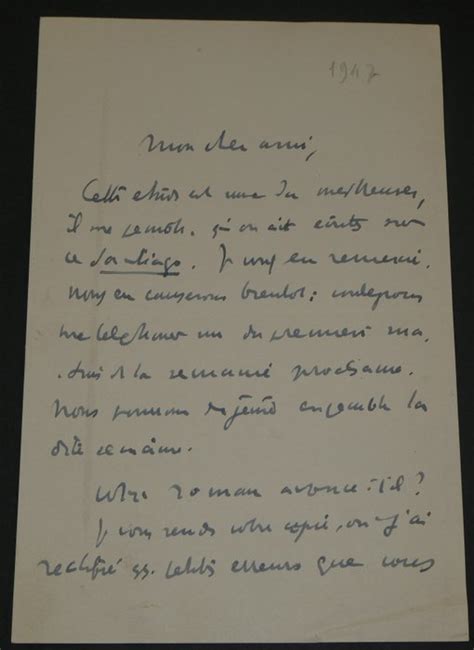 1947
Mon cher ami,
Cette étude est une des meilleures,
il me semble, qu'on ait écrites sur
ce Santiago. Je vous en remercie.
Nous en causerons bientôt : voulez-vous
me téléphoner un des premiers ma-
tins de la semaine prochaine.
Nous pourrons déjeuner ensemble la
dite semaine.
Votre roman avance-t-il ?
Je vous rends votre copie, où j'ai
rectifié qq. petites erreurs que vous